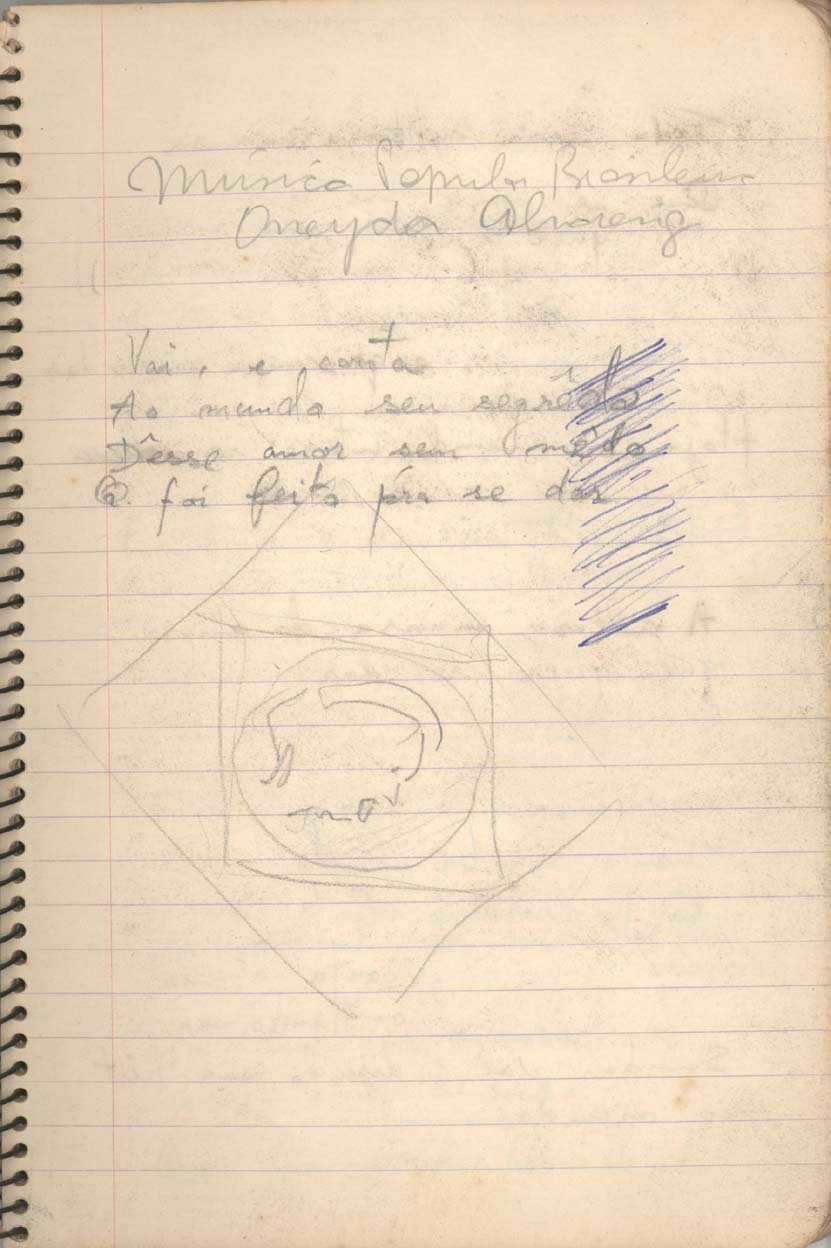 Música Popular Brasileira
Oneyda Alvarenga
Vai, e conta
Ao mundo seu segrêdo
Dêsse amor sem mêdo
Q. foi feito pra se dar